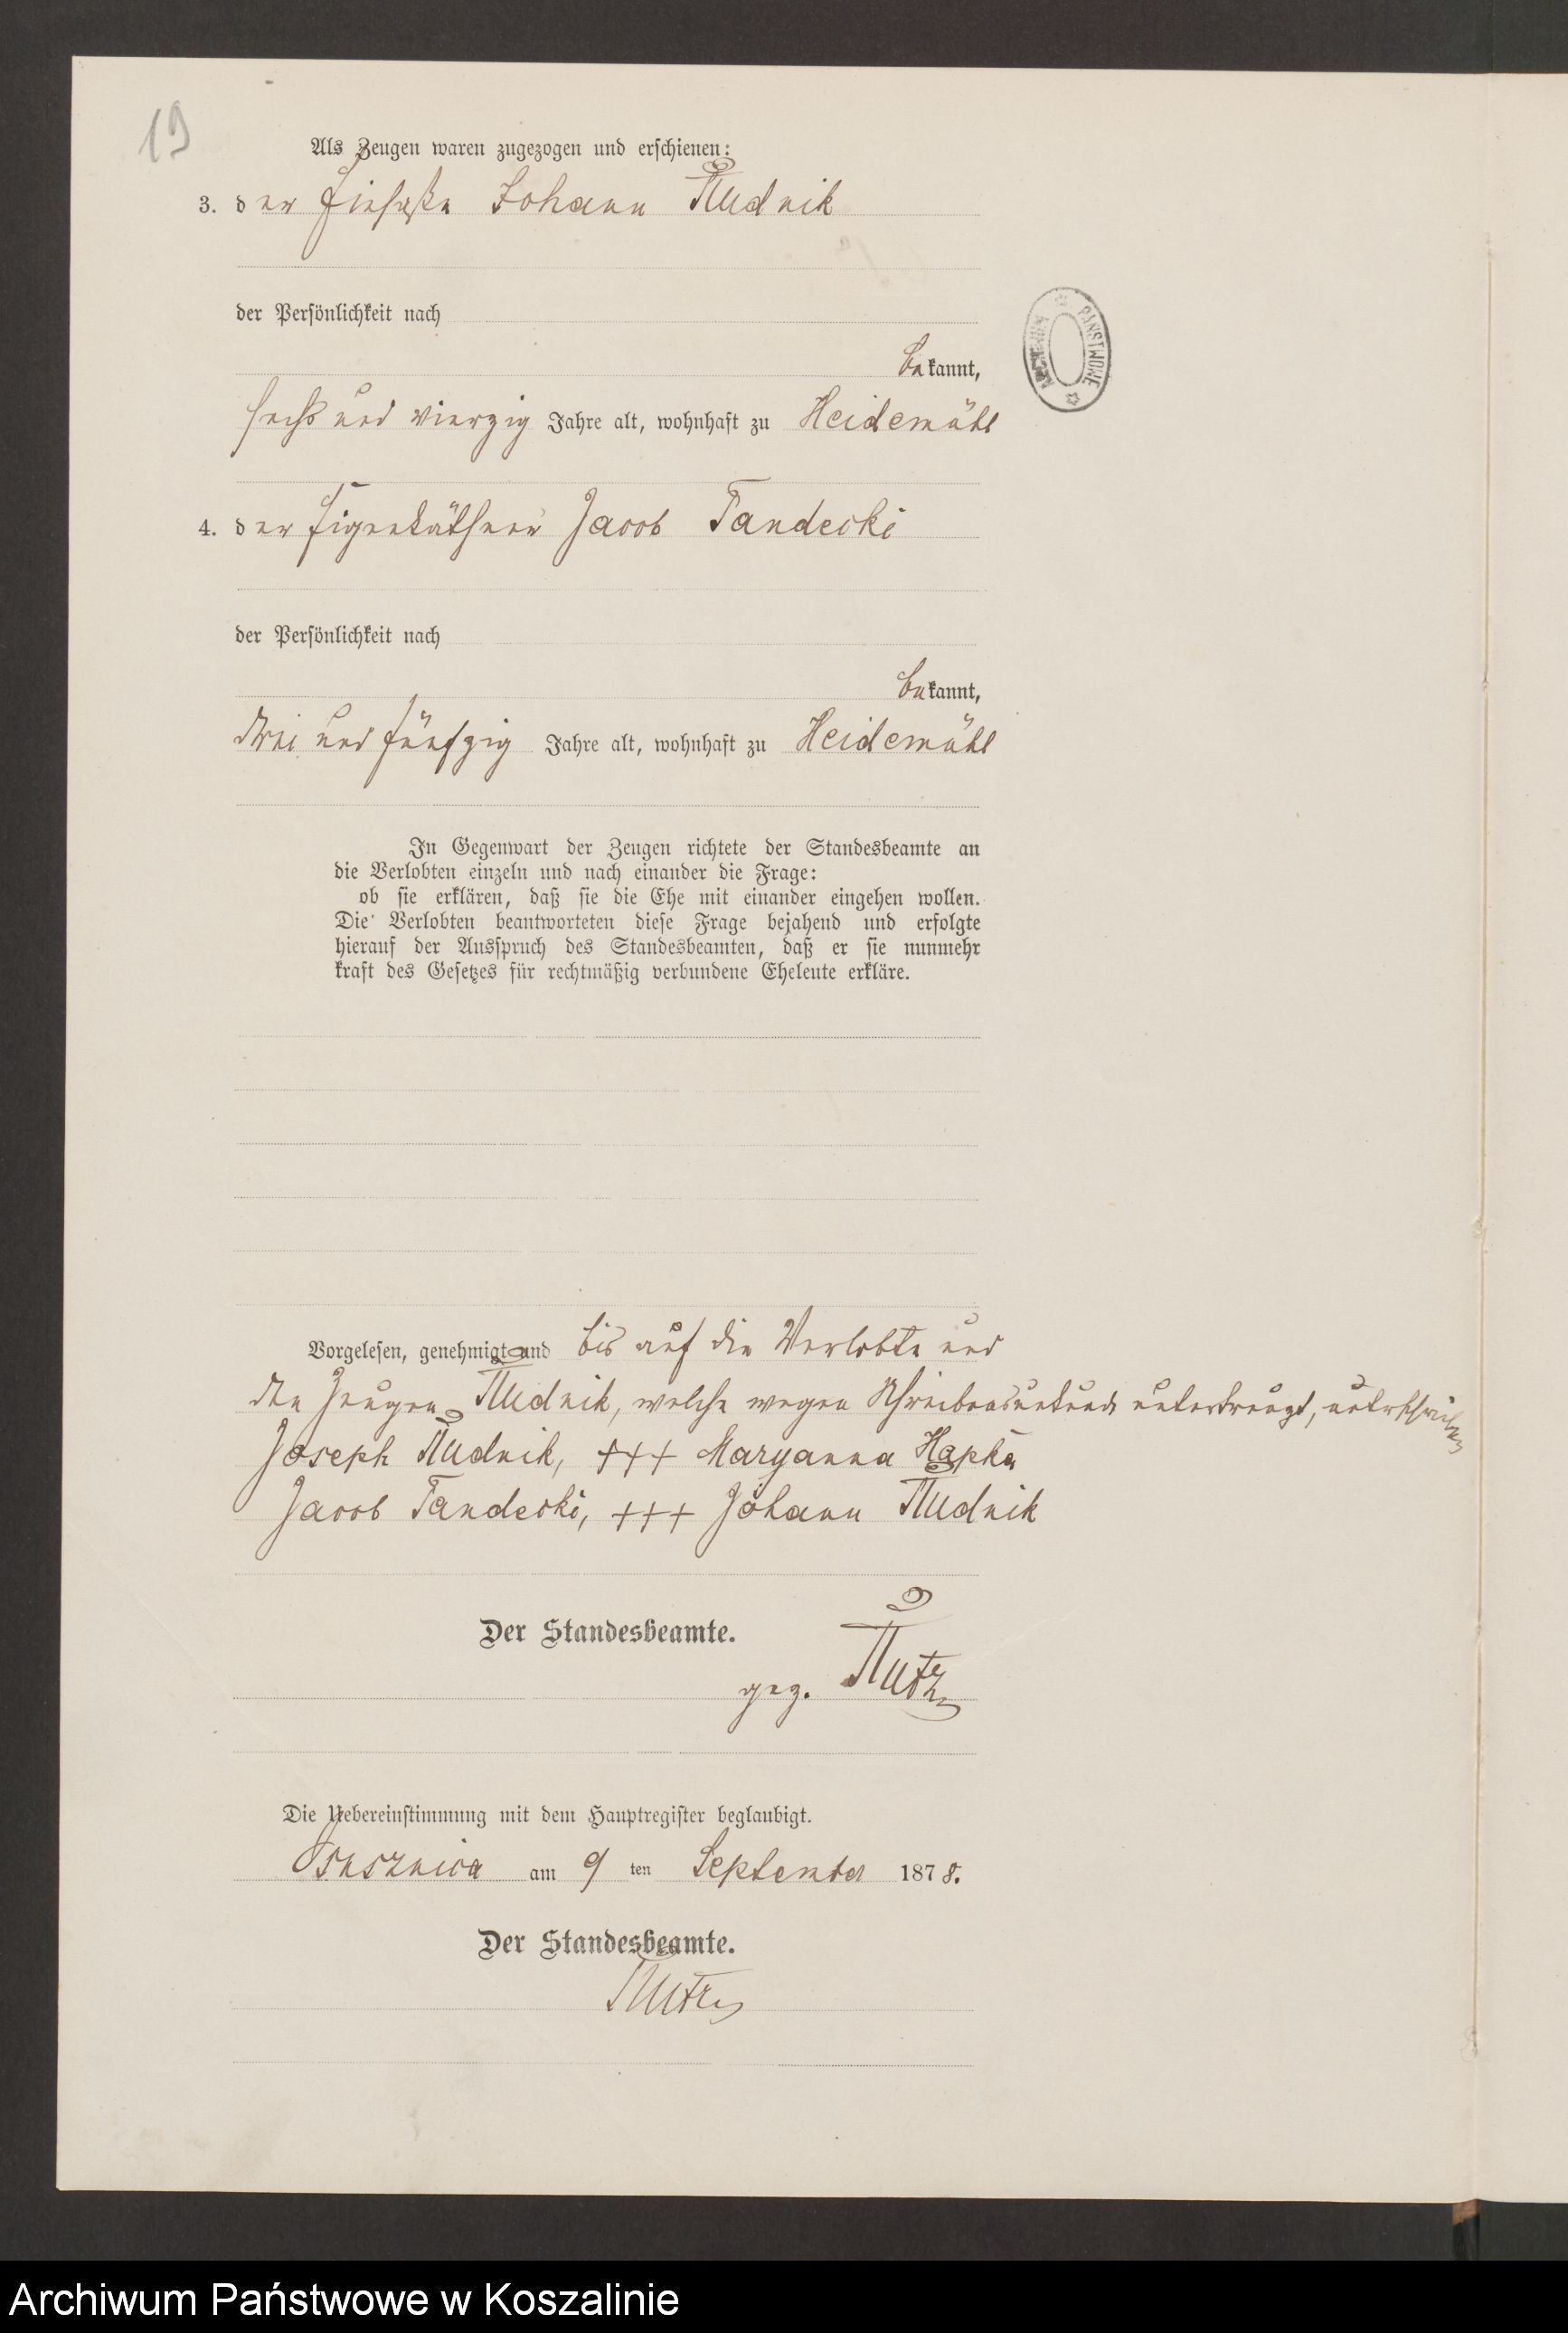 19
Als Zeugen waren zugezogen und erschienen:
3. der Einsaße Johann Rudnik
der Persönlichkeit nach
bekannt,
sechs und vierzig Jahre alt, wohnhaft zu Heidemühl
4. der Eigenkäthner Jacob Tandecki
der Persönlichkeit nach
bekannt,
drei und fünfzig Jahre alt, wohnhaft zu Heidemühl
In Gegenwart der Zeugen richtete der Standesbeamte an
die Verlobten einzeln und nach einander die Frage:
ob sie erklären, daß sie die Ehe mit einander eingehen wollen.
Die Verlobten beantworteten diese Frage bejahend und erfolgte
hierauf der Ausspruch des Standesbeamten, daß er sie nunmehr
kraft des Gesetzes für rechtmäßig verbundene Eheleute erkläre.
Vorgelesen, genehmigt und bis auf die Verlobte und
den Zeugen Rudnik, welche wegen Schreibensunkunde unterkreuzt, unterschrieben
Joseph Rudnik, +++ Maryanna Hapka
Jacob Tandecki, +++ Johann Rudnik
Der Standesbeamte.
gez.
Die Uebereinstimmung mit dem Hauptregister beglaubigt.
Ossusznica am 9 ten September 1878.
Der Standesbeamte.
PAŃSTWOWE
Archiwum Państwowe w Koszalinie